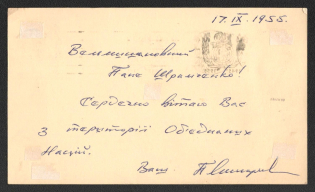 17.IX.1955.
Вельмишановний
Пане Шрамченко!
Сердечно вітаю Вас
з території Обєднаних
Націй.
Ваш